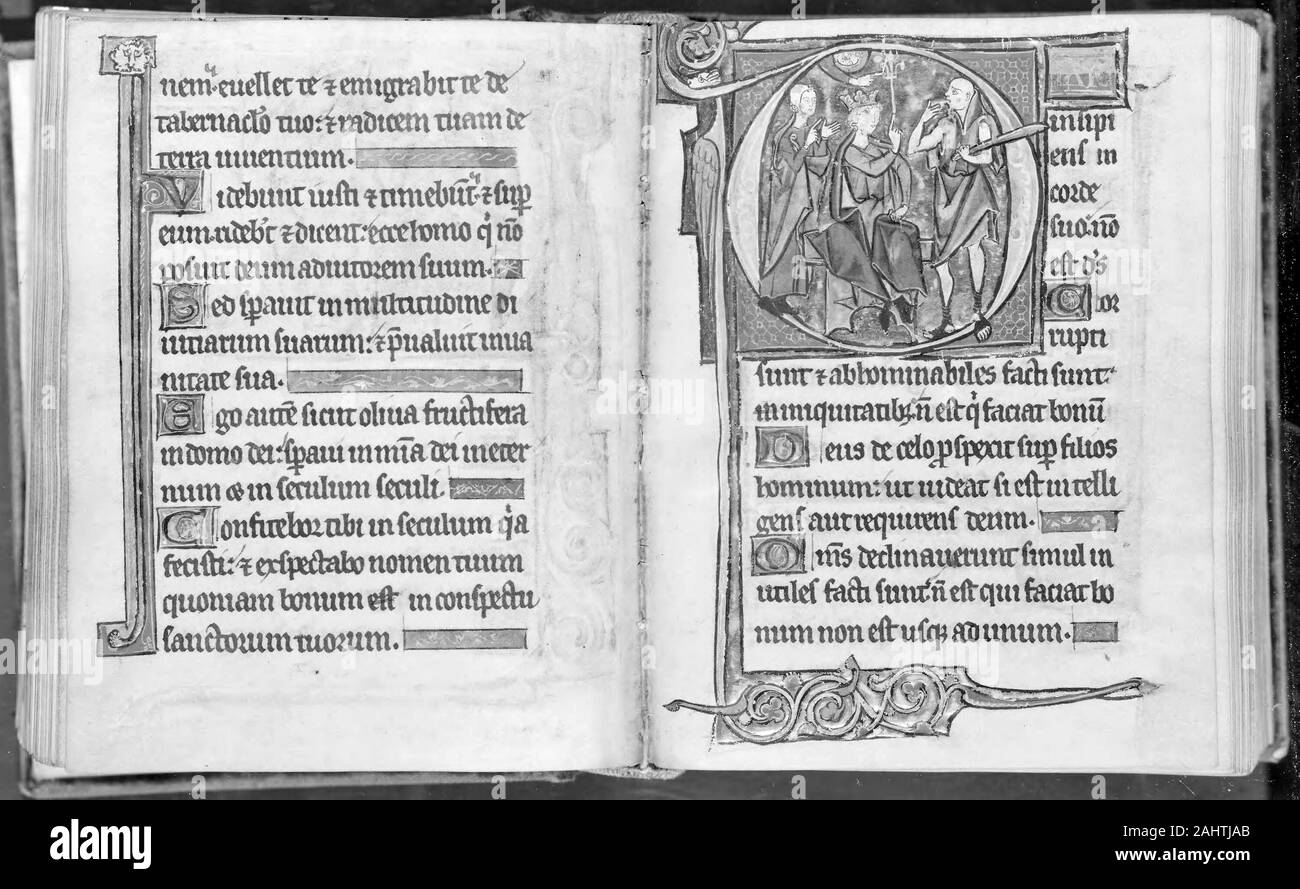 nem: euellet te ⁊ emigrabit te de
tabernaclo tuo: ⁊ radicem tuam de
terra uiuentium.
Videbunt iusti ⁊ timebūt: ⁊ sup
eum ridebt ⁊ dicent: ecce homo q̇ nō
posuit deum adiutorem suum.
Sed sꝑauit in multitudine di
uitiarum suarum: ⁊ p̄ualuit in ua
nitate sua.
Ego autē sicut oliua fructifera
in domo dei: sꝑaui in mīa dei in eter
num ⁊ in seculum seculi.
Confitebor tibi in seculum q̇a
fecisti: ⁊ exspectabo nomen tuum
quoniam bonum est in conspectu
sanctorum tuorum.
insipi
ens in
corde
suo: nō
est d̄s
Cor
rupti
sunt ⁊ abhominabiles facti sunt:
in iniquitatibꝫ n̄ est q̇ faciat bonū
Deus de celo ꝓspexit sup filios
hominum: ut uideat si est intelli
gens aut requirens deum.
Om̄s declinauerunt simul in
utiles facti sunt: n̄ est qui faciat bo
num non est usqꝫ ad unum.
alamy
Image ID: 2AHTJAB
www.alamy.com